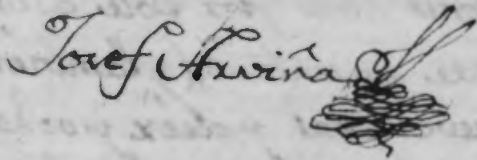 Josef Arviña